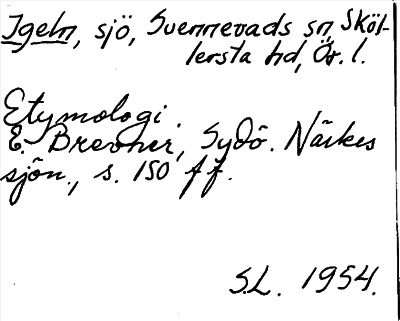 Igeln, sjö, Svennevads sn, Sköl-
lersta hd, Ör. l.
Etymologi.
E. Brevner, Sydö. Närkes
sjön., s. 150 ff.
S.L. 1954.